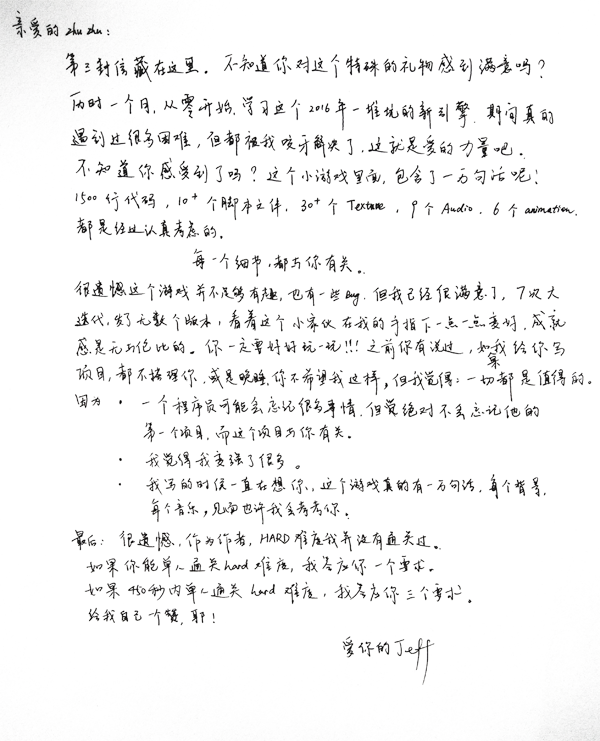 亲爱的 zhu zhu：
第三封信藏在这里。不知道你对这个特殊的礼物感到满意吗？
历时一个月，从零开始，学习这个2016年一堆坑的新引擎，期间真的
遇到过很多困难，但都被我咬牙解决了，这就是爱的力量吧。
不知道你感受到了吗？这个小游戏里面，包含了一万句话呢！
1500行代码，10+个脚本文件，30+个Texture，9个Audio，6个animation，
都是经过认真考虑的。
每一个细节，都与你有关。
很遗憾这个游戏并不足够有趣，也有一些bug，但我已经很满意了，7次大
迭代，发了无数个版本，看着这个小家伙在我的手指下一点一点变好，成就
感是无与伦比的。你一定要好好玩一玩!!! 之前你有说过，如果我给你写
项目，都不搭理你，或是晚睡，你不希望我这样，但我觉得：一切都是值得的。
因为 · 一个程序员可能会忘记很多事情，但觉绝对不会忘记他的
第一个项目，而这个项目与你有关。
· 我觉得我变强了很多。
· 我写的时候一直在想你，这个游戏真的有一万句话，每个背景，
每个音乐，见面也许我会考考你。
最后：很遗憾，作为作者，HARD难度我并没有通关过。
如果你能单人通关hard难度，我答应你一个要求。
如果450秒内单人通关hard难度，我答应你三个要求。
给我自己一个赞，耶！
爱你的Jeff